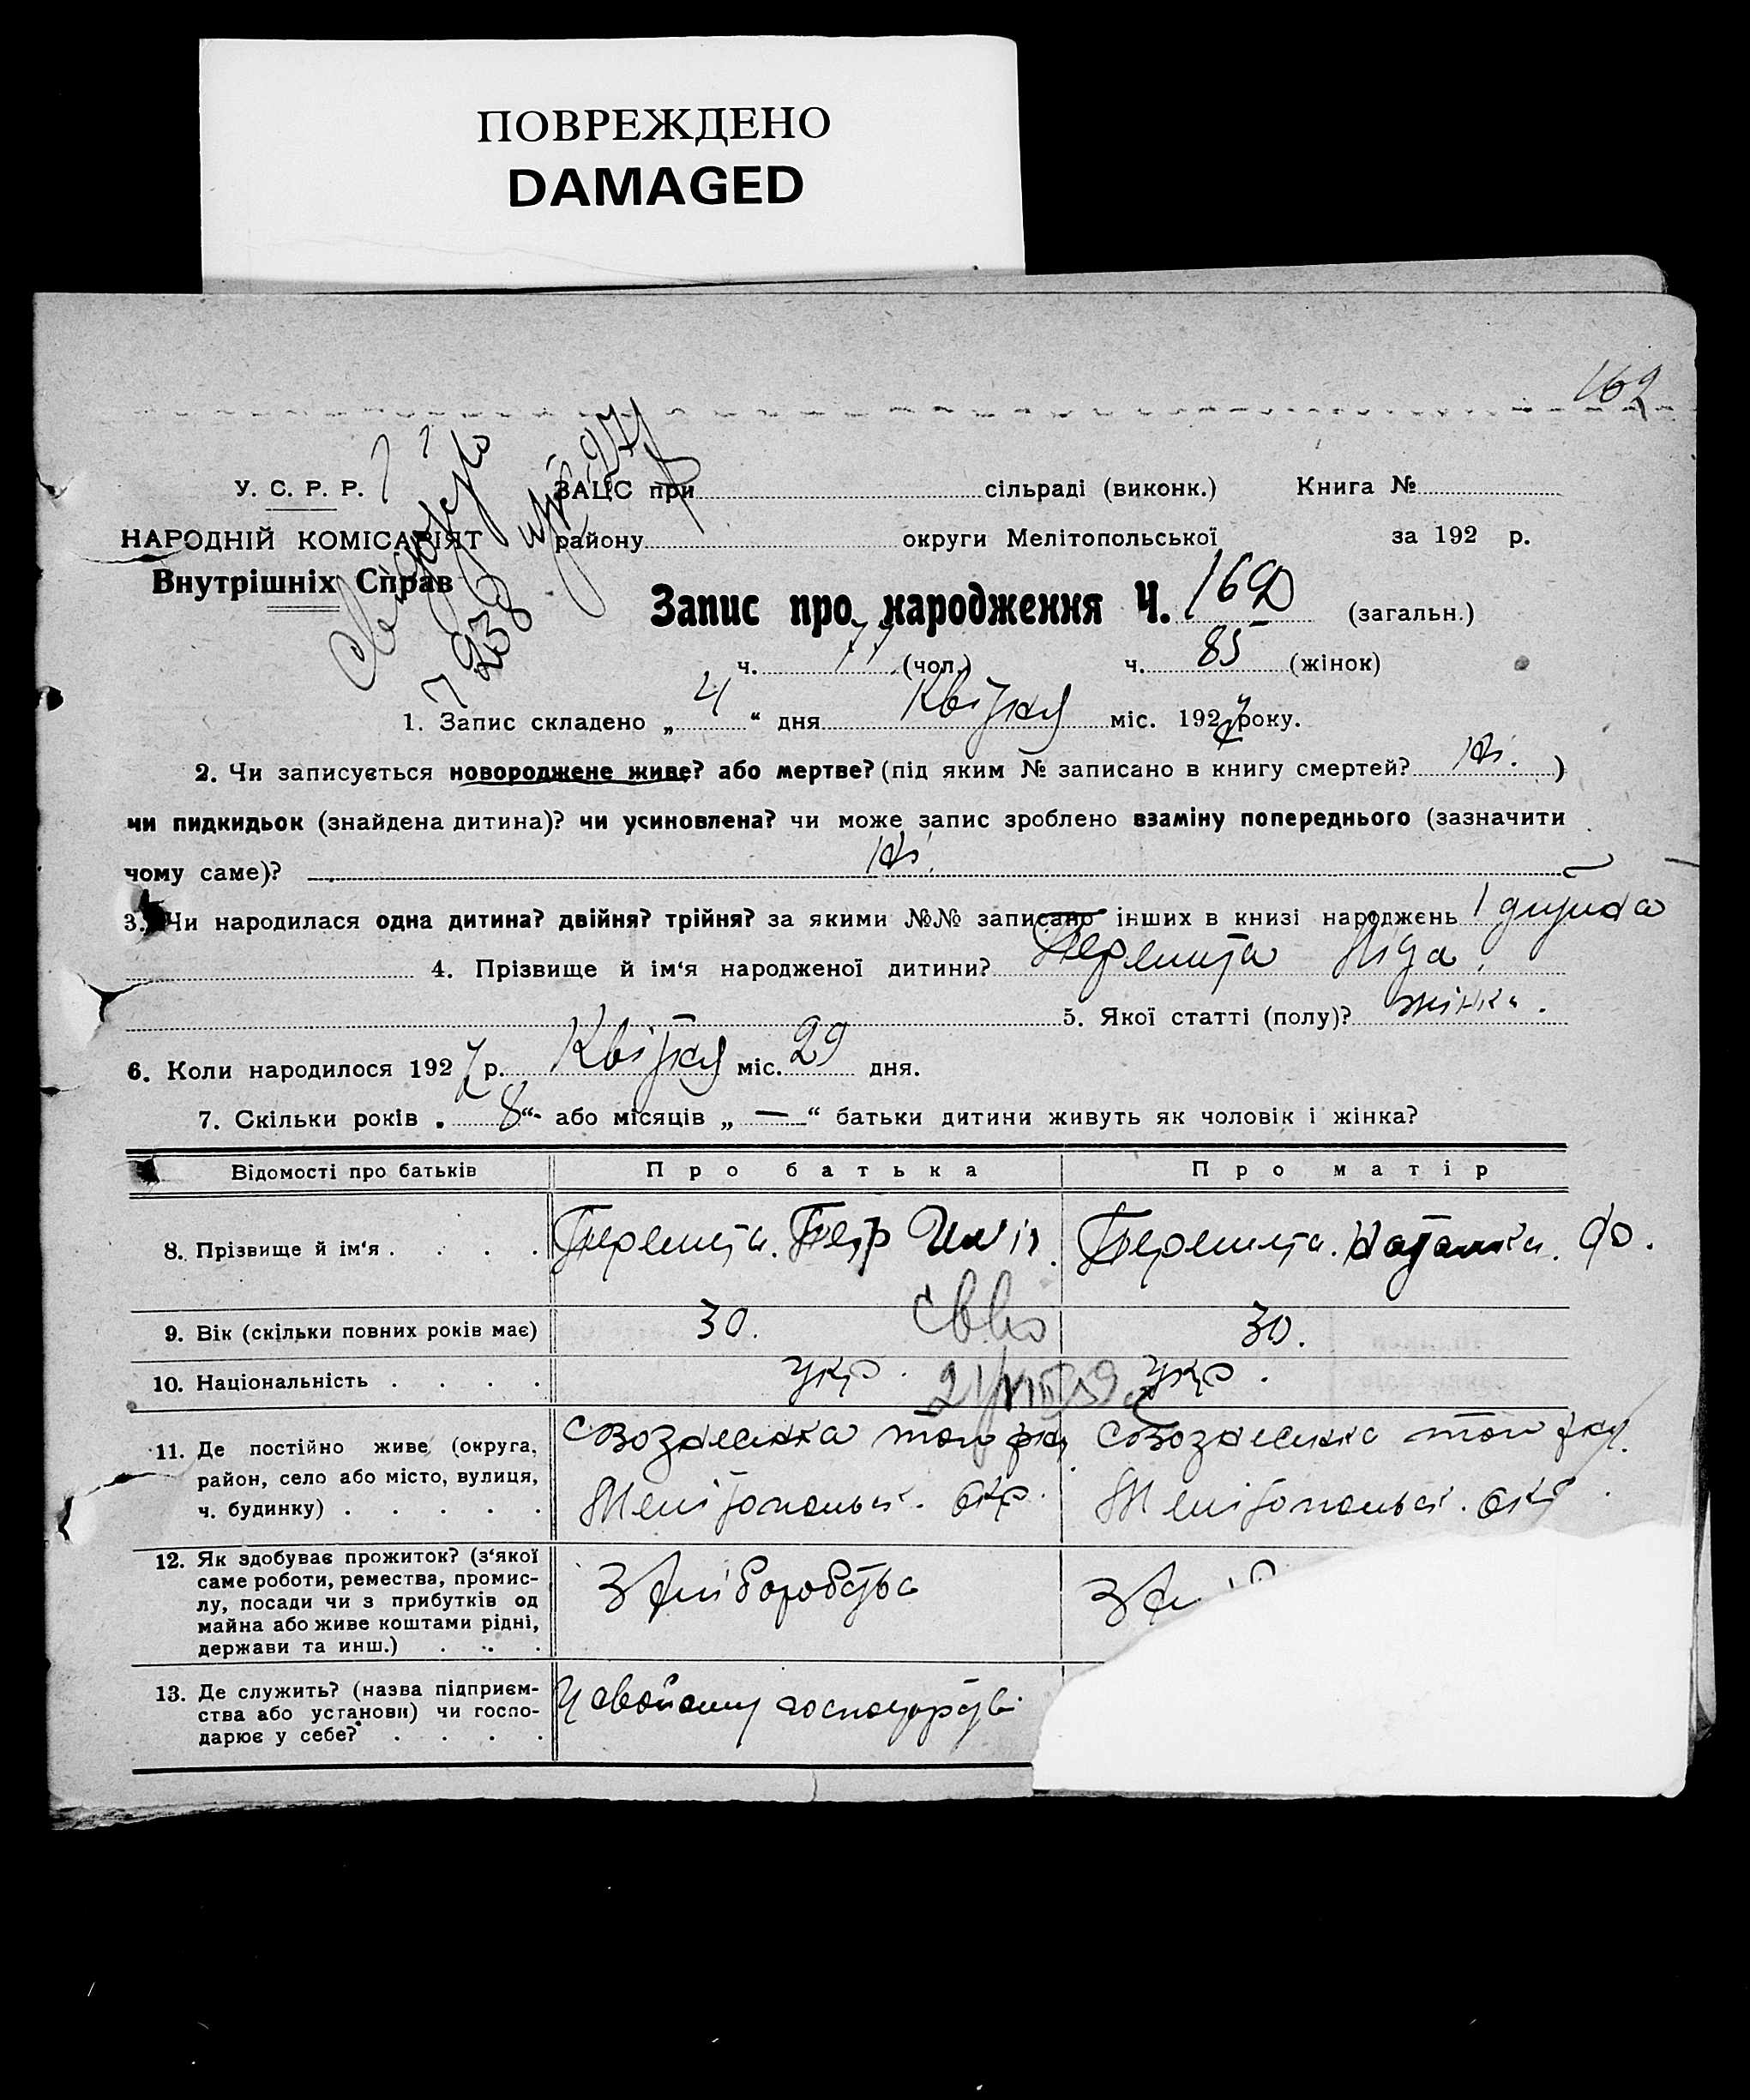 ПОВРЕЖДЕНО
DAMAGED
162
У. С. Р. Р.
ЗАЦС при сільраді (виконк.) Книга №
НАРОДНІЙ КОМІСАРІЯТ
району округи Мелітопольської за 192 р.
Внутрішніх Справ
238
Запис про народження Ч. 162 (загальн.)
ч. 77 (чол.) ч. 85 (жінок)
1. Запис складено „ 4 “ дня Квітня міс. 1927 року.
2. Чи записується новороджене живе? або мертве? (під яким № записано в книгу смертей? Ні. )
чи пидкидьок (знайдена дитина)? чи усиновлена? чи може запис зроблено взаміну попереднього (зазначити
чому саме)? Ні.
3. Чи народилася одна дитина? двійня? трійня? за якими №№ записано інших в книзі народжень 1 дитина
4. Прізвище й ім‘я народженої дитини?
5. Якої статті (полу)? жінка.
6. Коли народилося 1927 р. Квітня міс. 29 дня.
7. Скільки років „ 8 “ або місяців „ — “ батьки дитини живуть як чоловік і жінка?
Відомості про батьків Про батька Про матір
8. Прізвище й ім‘я . . . .
9. Вік (скільки повних років має) 30. 30.
10. Національність . . . . укр. укр.
11. Де постійно живе (округа,
район, село або місто, вулиця,
ч. будинку) . . . . . Мелітопольск. окр. Мелітопольск. окр.
12. Як здобуває прожиток? (з‘якої
саме роботи, ремества, промис-
лу, посади чи з прибутків од
майна або живе коштами рідні,
держави та инш.) . . .
13. Де служить? (назва підприєм-
ства або установи) чи госпо-
дарює у себе? . . . .
У своєму господарстві